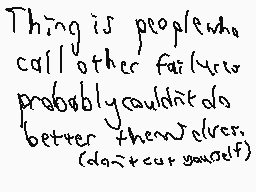 Thing is people who
call other failures
probably couldn't do
better themselves.
(don't cut yourself)